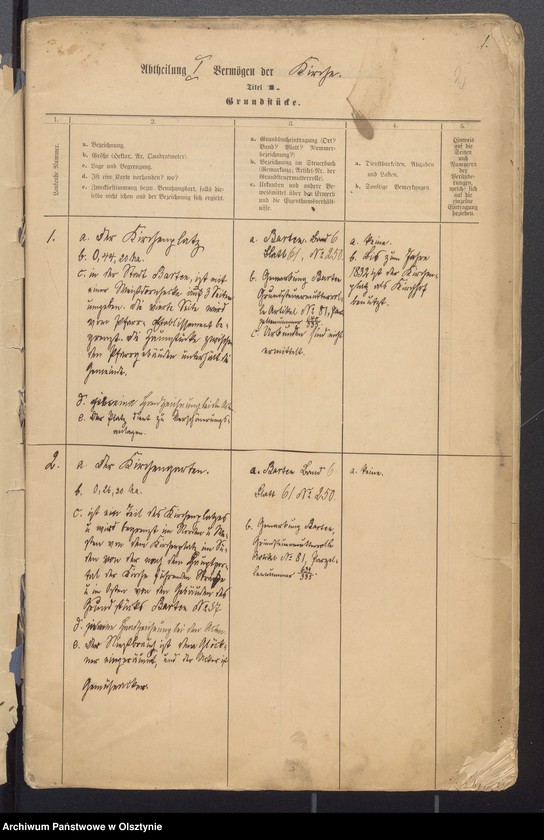 1.
Abtheilung I Vermögen der Kirche.
Titel II.
Grundstücke.
1.
Laufende Nummer.
2.
a. Bezeichnung.
b. Größe (Hektar, Ar, Quadratmeter).
c. Lage und Begrenzung.
d. Ist eine Karte vorhanden? wo?
e. Zweckbestimmung bezw. Benutzungsart, falls die-
selbe nicht schon aus der Bezeichnung sich ergiebt.
3.
a. Grundbucheintragung (Ort?
Band? Blatt? Nummer-
bezeichnung?)
b. Bezeichnung im Steuerbuch
(Gemarkung, Artikel-Nr. der
Grundsteuermutterrolle).
c. Urkunden und andere Be-
weismittel über den Erwerb
und die Eigenthumsverhält-
nisse.
4.
a. Dienstbarkeiten, Abgaben
und Lasten.
b. Sonstige Bemerkungen.
5.
Hinweis
auf die
Seiten
und
Nummern
der
Verände-
rungen,
welche sich
auf die
einzelne
Eintragung
beziehen.
1.
a. Der Kirchenplatz
b. 0,44,20 ha.
c. in der Stadt Barten, ist mit
einer umgeben. Die vierte Seite wird
vom Pfarr-Etablissement be-
grenzt. Die zwischen
den Pfarrgebäuden unterhält die
Gemeinde.
d. eine Handzeichnung bei den Akten
e. Der Platz dient zu Verschönerungs-
anlagen.
a. Barten Band 6
Blatt 61, No 250.
b. Gemarkung Barten
Grundsteuermutterrol-
le Artikel No 81, Par-
zellennummer
c. Urkunden sind nicht
ermittelt.
a. Keine.
b. Bis zum Jahre
1832 ist der Kirchen-
platz als Kirchhof
benützt.
2.
a. Der Kirchengarten.
b. 0,26,20 ha.
c. ist ein Teil des Kirchenplatzes
u. wird begrenzt im Norden u. We-
sten von dem Kirchenplatz im Sü-
den von der nach dem
der Kirche führenden Straße
u. im Osten von den Gebäuden des
Grundstücks Barten No 57.
d. Handzeichnung bei den Akten
e. Der Nießbrauch ist dem Glöck-
ner eingeräumt, und der Acker ist
Gemüseacker.
a. Barten Band 6
Blatt 61 No 250.
b. Gemarkung Barten,
Grundsteuermutterrolle
Artikel No 81, Parzel-
lennummer
a. Keine.
Archiwum Państwowe w Olsztynie